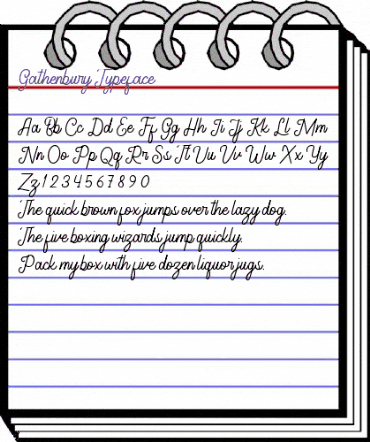 Gathenbury Typeface
Aa Bb Cc Dd Ee Ff Gg Hh Ii Jj Kk Ll Mm
Nn Oo Pp Qq Rr Ss Tt Uu Vv Ww Xx Yy
Zz 1 2 3 4 5 6 7 8 9 0
The quick brown fox jumps over the lazy dog.
The five boxing wizards jump quickly.
Pack my box with five dozen liquor jugs.